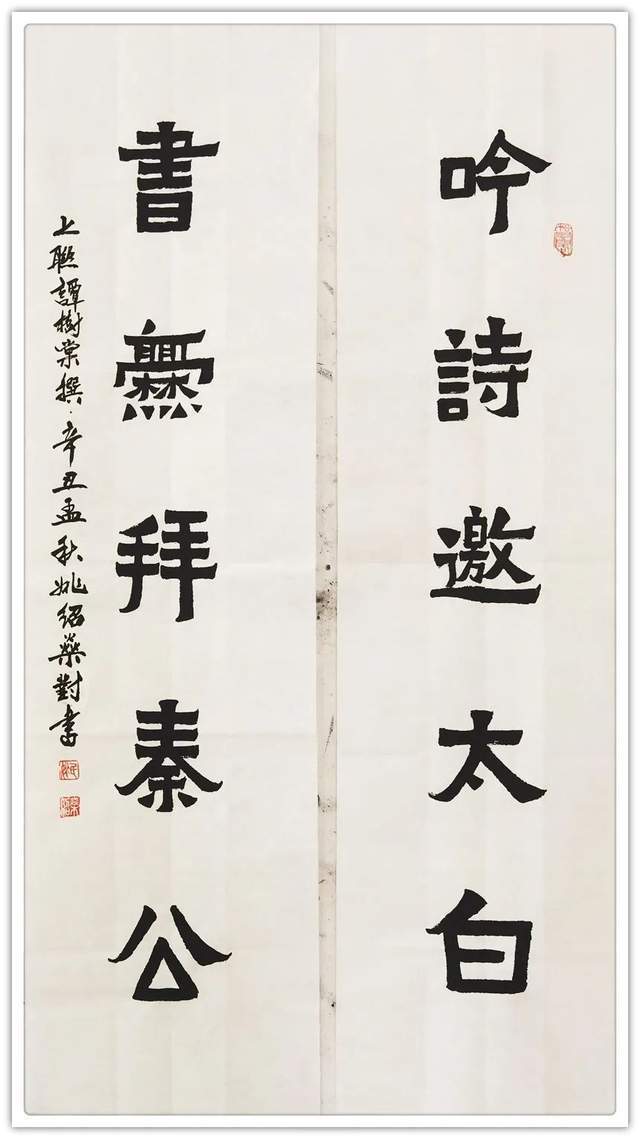 吟詩邀太白
書爨拜秦公
上聯譚樹棠撰·辛丑孟秋姚紹燊對書